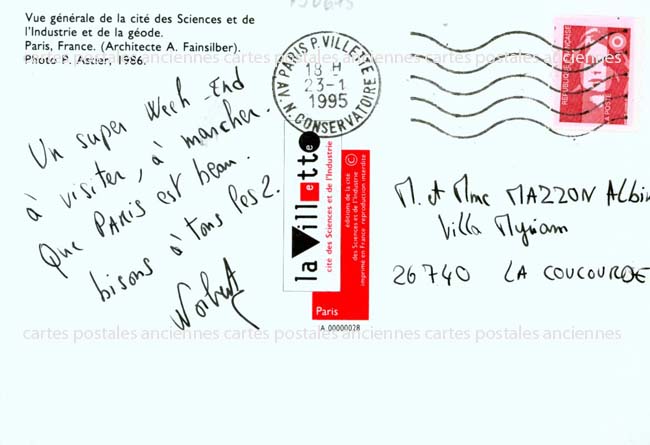 Vue générale de la cité des Sciences et de
l'Industrie et de la géode.
Paris, France. (Architecte A. Fainsilber).
Photo P. Astier, 1986.
PARIS P. VILLETTE
18 H
23-1
1995
AV N. CONSERVATOIRE
RÉPUBLIQUE FRANÇAISE
LA POSTE
Un super Week-End
à visiter, à marcher.
Que PARIS est beau.
bisons à tous les 2.
Norbert
la Villette
cité des Sciences et de l'Industrie
©
éditions de la cité
des Sciences et de l'Industrie
imprimé en France reproduction interdite
Paris
IA 00000028
M. et Mme MAZZON Albin
Villa Myriam
26740 LA COUCOURDE
cartes postales anciennes cartes postales anciennes cartes postales anciennes
cartes postales anciennes cartes postales anciennes cartes postales anciennes